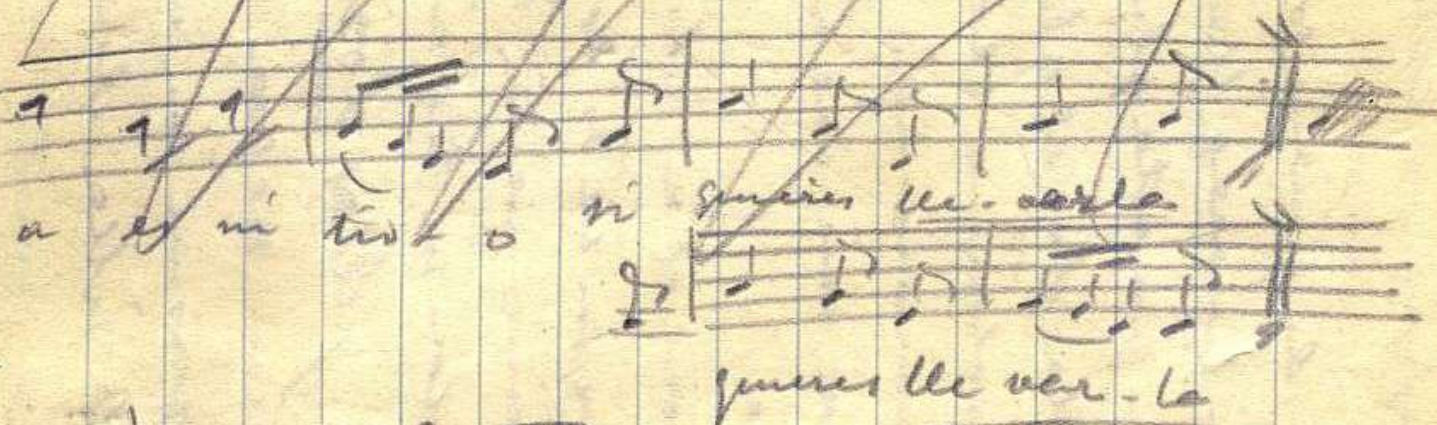 a es mi tio - o si quieres lle - varla
quieres lle var - la